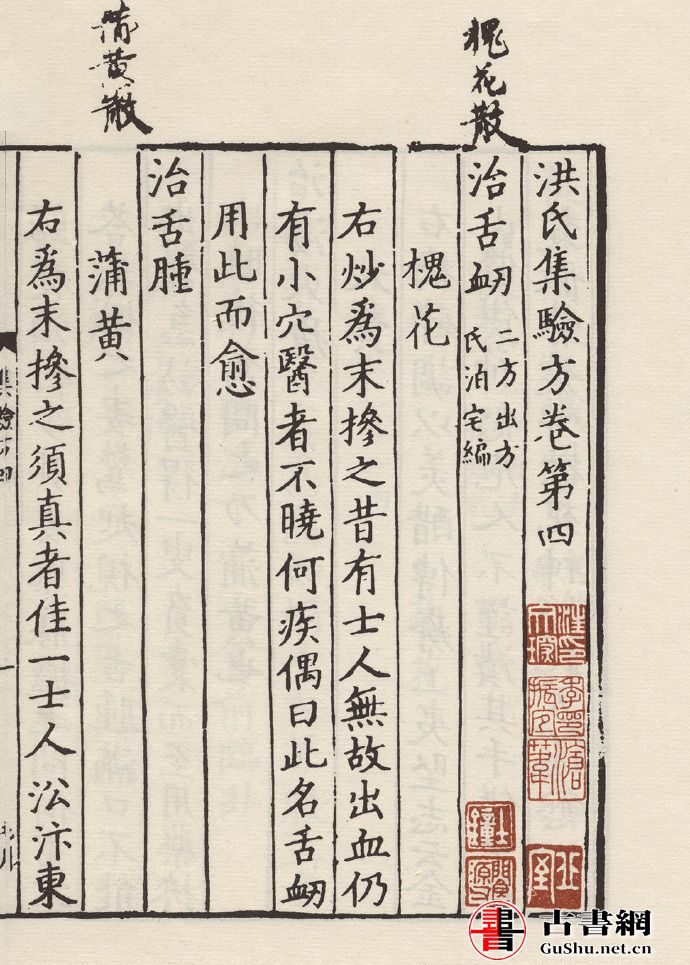 槐花散
蒲黄散
洪氏集驗方卷第四
治舌衂 二方出方
氏泊宅編
槐花
右炒爲末摻之昔有士人無故出血仍
有小穴醫者不曉何疾偶曰此名舌衂
用此而愈
治舌腫
蒲黄
右爲末摻之須真者佳一士人㳂汴東
集驗方四
古書網
GuShu.net.cn